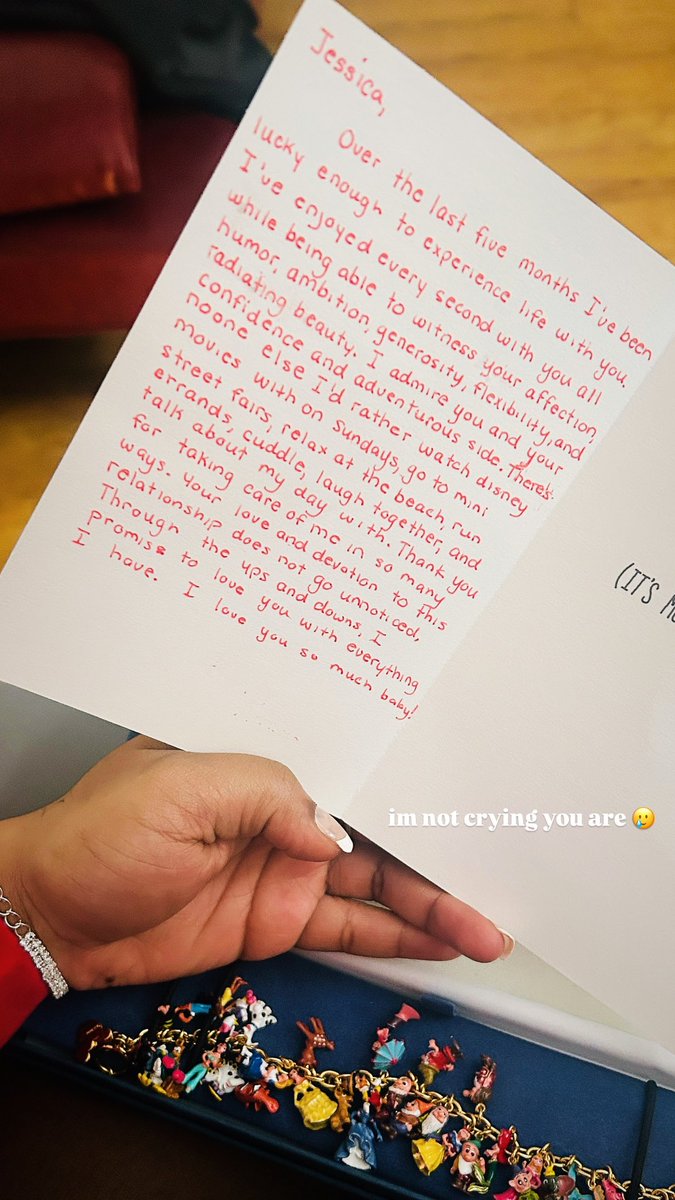 Jessica,
Over the last five months I've been
lucky enough to experience life with you.
I've enjoyed every second with you all
while being able to witness your affection,
humor, ambition, generosity, flexibility, and
radiating beauty. I admire you and your
confidence and adventurous side. There's
noone else I'd rather watch disney
movies with on Sundays, go to mini
street fairs, relax at the beach, run
errands, cuddle, laugh together, and
talk about my day with. Thank you
for taking care of me in so many
ways. Your love and devotion to this
relationship does not go unnoticed,
Through the ups and downs, I
promise to love you with everything
I have.
I love you so much baby!
(IT'S
im not crying you are 🥲